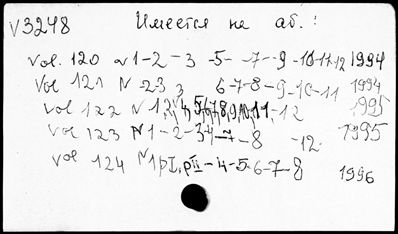 V3248 Имеется на аб.:
vol. 120 N 1-2-3 -5- -7- -9 -10-11-12 1994
vol 121 N -23 3 6-7-8-9-10-11 1994
vol 122 N 12, 4,5,6,7,8,9,10,11,-12 1995
vol 123 N 1-2-34-7-8 -12- 1995
vol 124 N 1pI, pII-4-5-6-7-8 1996